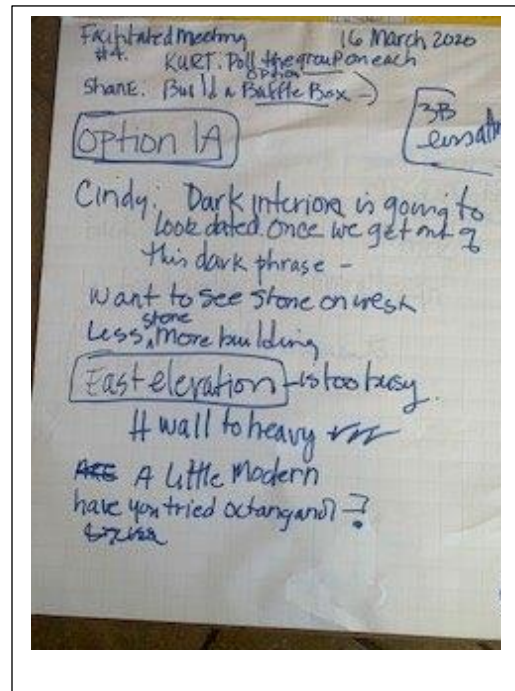 Facilitated Meeting 16 March 2020
#4. KURT: Poll the group on each
option
Shane: Build a Baffle Box →
3B
Option 1A
Cindy: Dark interiors is going to
look dated. Once we get out of
this dark phrase -
want to see stone on west
Less stone, More building
East elevation - is too busy.
H wall to heavy
A Little Modern
have you tried ?